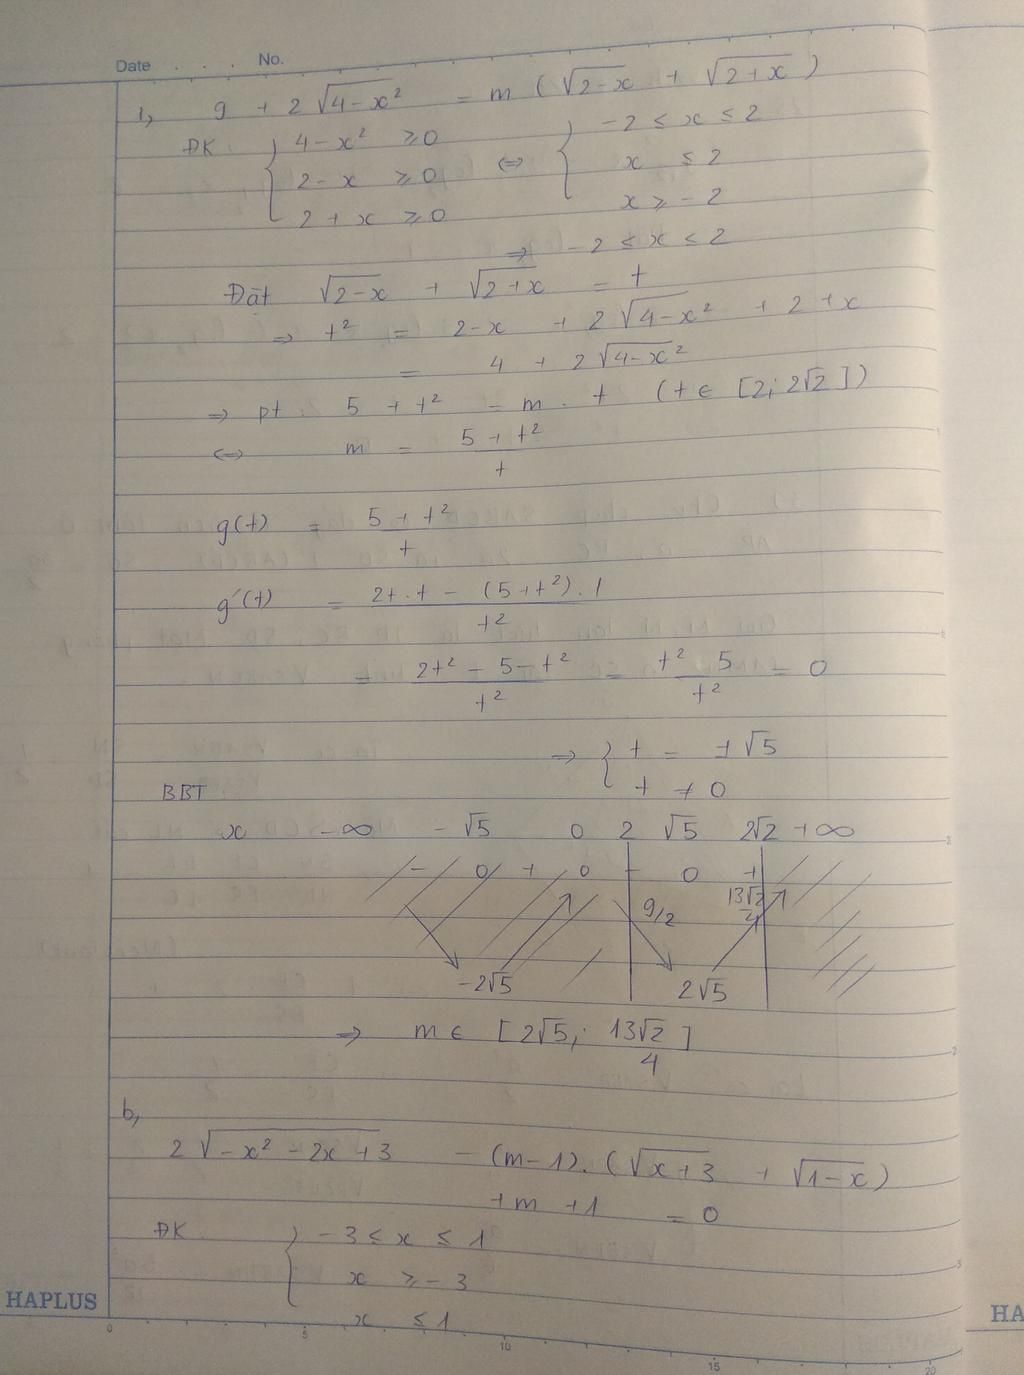 Date . . . No.
1, 9 + 2√(4-x²) = m (√(2-x) + √(2+x))
ĐK { 4-x² ≥ 0 ⇔ { -2 ≤ x ≤ 2
2-x ≥ 0 x ≤ 2
2+x ≥ 0 x ≥ -2
⇒ -2 ≤ x ≤ 2
Đặt √(2-x) + √(2+x) = t
⇒ t² = 2-x + 2√(4-x²) + 2+x
= 4 + 2√(4-x²)
⇒ pt 5 + t² = m . t (t ∈ [2; 2√2])
⇔ m = (5+t²)/t
g(t) = (5+t²)/t
g'(t) = (2t.t - (5+t²).1)/t²
= (2t² - 5 - t²)/t² = (t² - 5)/t² = 0
⇒ { t = ±√5
t ≠ 0
BBT
x -∞ -√5 0 2 √5 2√2 +∞
- 0 + 0 - 0 +
9/2 13√2/4
-2√5 2√5
⇒ m ∈ [2√5; 13√2/4]
b,
2√(-x² - 2x + 3) - (m-1).(√(x+3) + √(1-x))
+m +1 = 0
ĐK { -3 ≤ x ≤ 1
x ≥ -3
x ≤ 1
HAPLUS
HA
0 5 10 15 20